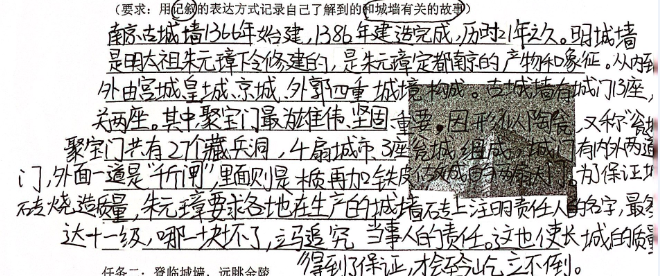 （要求：用记叙的表达方式记录自己了解到的和城墙有关的故事）
南京古城墙1366年始建，1386年建造完成，历时21年之久。明城墙
是明太祖朱元璋下令修建的，是朱元璋定都南京的产物和象征。从内到
外由宫城、皇城、京城、外郭四重城墙构成。古城墙有城门13座，
关两座。其中聚宝门最为雄伟、坚固、重要，因形似陶瓮，又称"瓮
聚宝门共有27个藏兵洞，4扇城市，3座瓮城组成，城门有内外两道
门，外面一道是"千斤闸"，里面则是木质再加铁皮 的两扇大门。为了保证城
砖烧造质量，朱元璋要求各地在生产的城墙砖上注明责任人的名字，最多
达十一级，哪一块坏了，立马追究 当事人的责任。这也使长城的质量
得到了保证，才至今屹立不倒。
任务二：登临城墙，远眺金陵